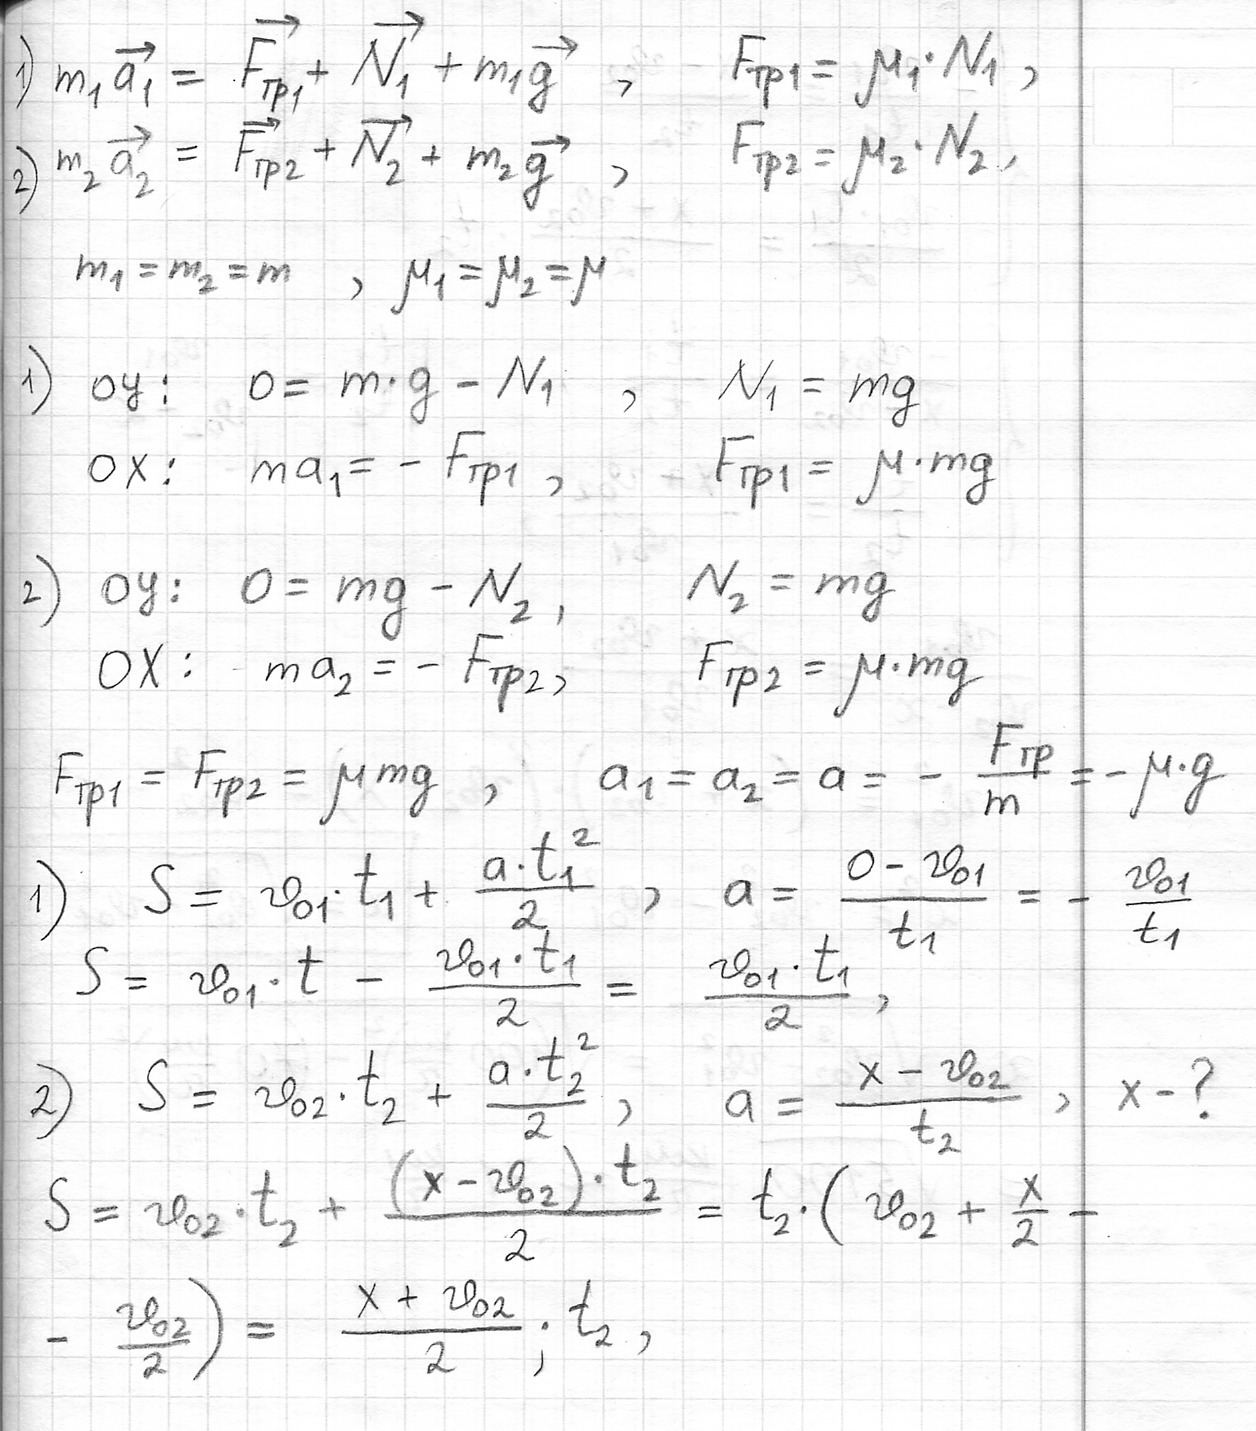 1) m₁a⃗₁ = F⃗тр₁ + N⃗₁ + m₁g⃗ , Fтр₁ = μ₁·N₁ ,
2) m₂a⃗₂ = F⃗тр₂ + N⃗₂ + m₂g⃗ , Fтр₂ = μ₂·N₂ ,
m₁ = m₂ = m , μ₁ = μ₂ = μ
1) оу: 0 = m·g − N₁ , N₁ = mg
ОХ: ma₁ = − Fтр₁ , Fтр₁ = μ·mg
2) оу: 0 = mg − N₂ , N₂ = mg
ОХ: ma₂ = − Fтр₂ , Fтр₂ = μ·mg
Fтр₁ = Fтр₂ = μmg , a₁ = a₂ = a = − Fтр/m = − μ·g
1) S = v₀₁·t₁ + a·t₁²/2 , a = (0 − v₀₁)/t₁ = − v₀₁/t₁
S = v₀₁·t − v₀₁·t₁/2 = v₀₁·t₁/2 ,
2) S = v₀₂·t₂ + a·t₂²/2 , a = (x − v₀₂)/t₂ , x − ?
S = v₀₂·t₂ + (x − v₀₂)·t₂/2 = t₂·( v₀₂ + x/2 −
− v₀₂/2 ) = (x + v₀₂)/2 · t₂ ,